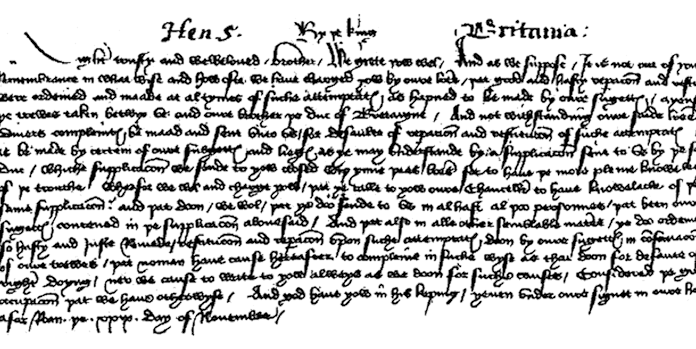 Hen 5. By þe king Britania:
Right trusty and welbeloved brother, We grete yow wel, And as we suppose, It is not out of your
Remembrance in what wise and how ofte we have charged yow by oure lettres þat good and hasty reparacion and
were ordeined and maade at al tymes of suche attemptats as hapned to be made by oure sugetts
þe trewes taken betwyx us and oure brother þe duc of Bretaigne, And not withstanding oure saide
diverse complaints be maad and sent unto us for defaulte of reparacion and restitucion of suche attemptats
as be made by certein of oure sugetts and lieges as ye may understande by a supplicacion sent to us by þe
duc, whiche supplicacion we sende to yow closed withynne þees lettres for to have þe more pleine
of þe trouthe. Wherfor we wol and charge yow, þat ye calle to yow oure Chanceller to have knowalache of þe
same supplicacion, and þat doon, we wol, þat ye do sende to us in al haste al þo personnes, þat been oure
sugetts contened in þe supplicacion abovesaid, And þat also in alle other semblable matere, ye do ordeine
so hasty and juste Remede, restitucion and reparacion upon suche attemptats doon by oure sugetts in conservacion
of oure trewes, þat noman have cause hereafter, to compleine in suche wyse as thei doon for defaute of
right doying, ner we cause to write to yow alweys as we doon for suche causes, Considered þe gret
occupacion þat we have otherwyse, And god have yow in his keping, yeven under oure signet in oure
afore Roan. þe. xxix. day of Novembre,